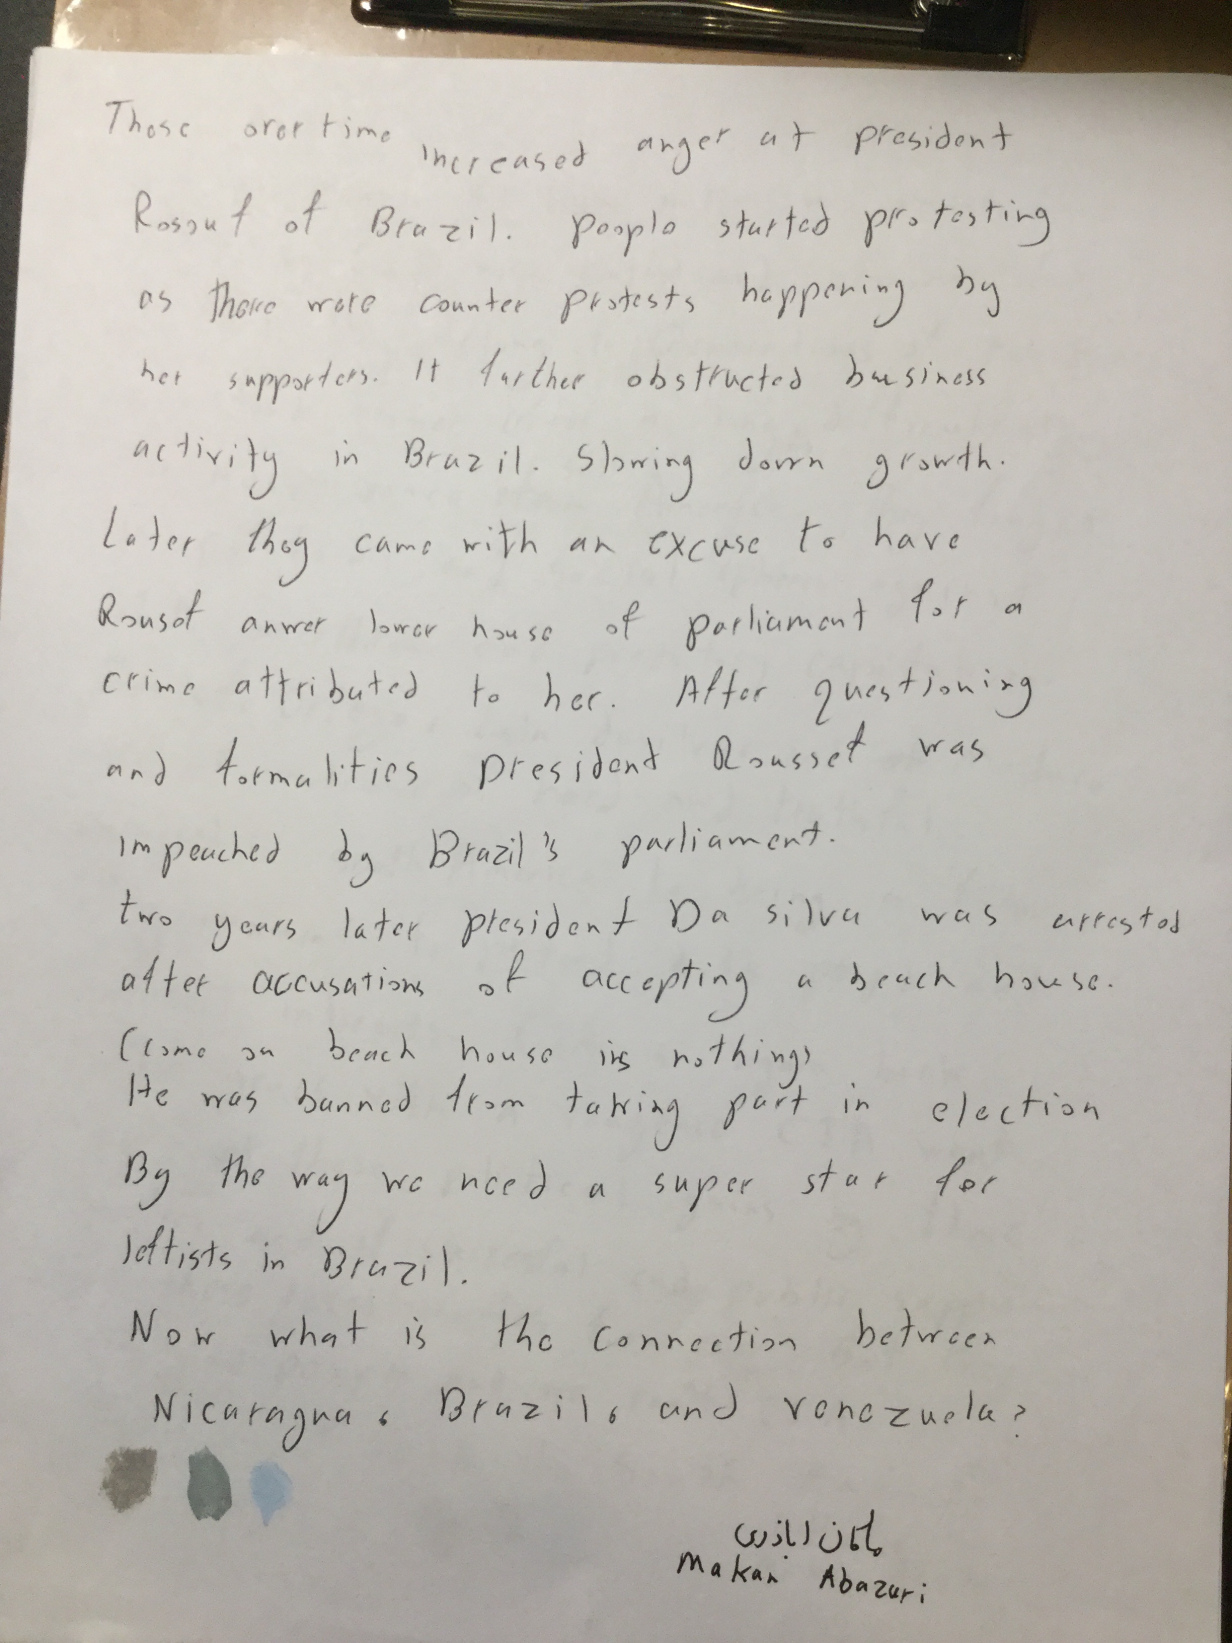 These over time increased anger at president
Rosouf of Brazil. people started protesting
as there were counter protests happening by
her supporters. It further obstructed business
activity in Brazil. Slowing down growth.
Later they came with an excuse to have
Rousof anwer lower house of parliament for a
crime attributed to her. After questioning
and formalities president Roussef was
impeached by Brazil's parliament.
two years later president Da silva was arrested
after accusations of accepting a beach house.
(come on beach house is nothing)
He was banned from taking part in election
By the way we need a super star for
leftists in Brazil.
Now what is the connection between
Nicaragua, Brazil, and venezuela?
ماکان اباذری
Makan Abazari